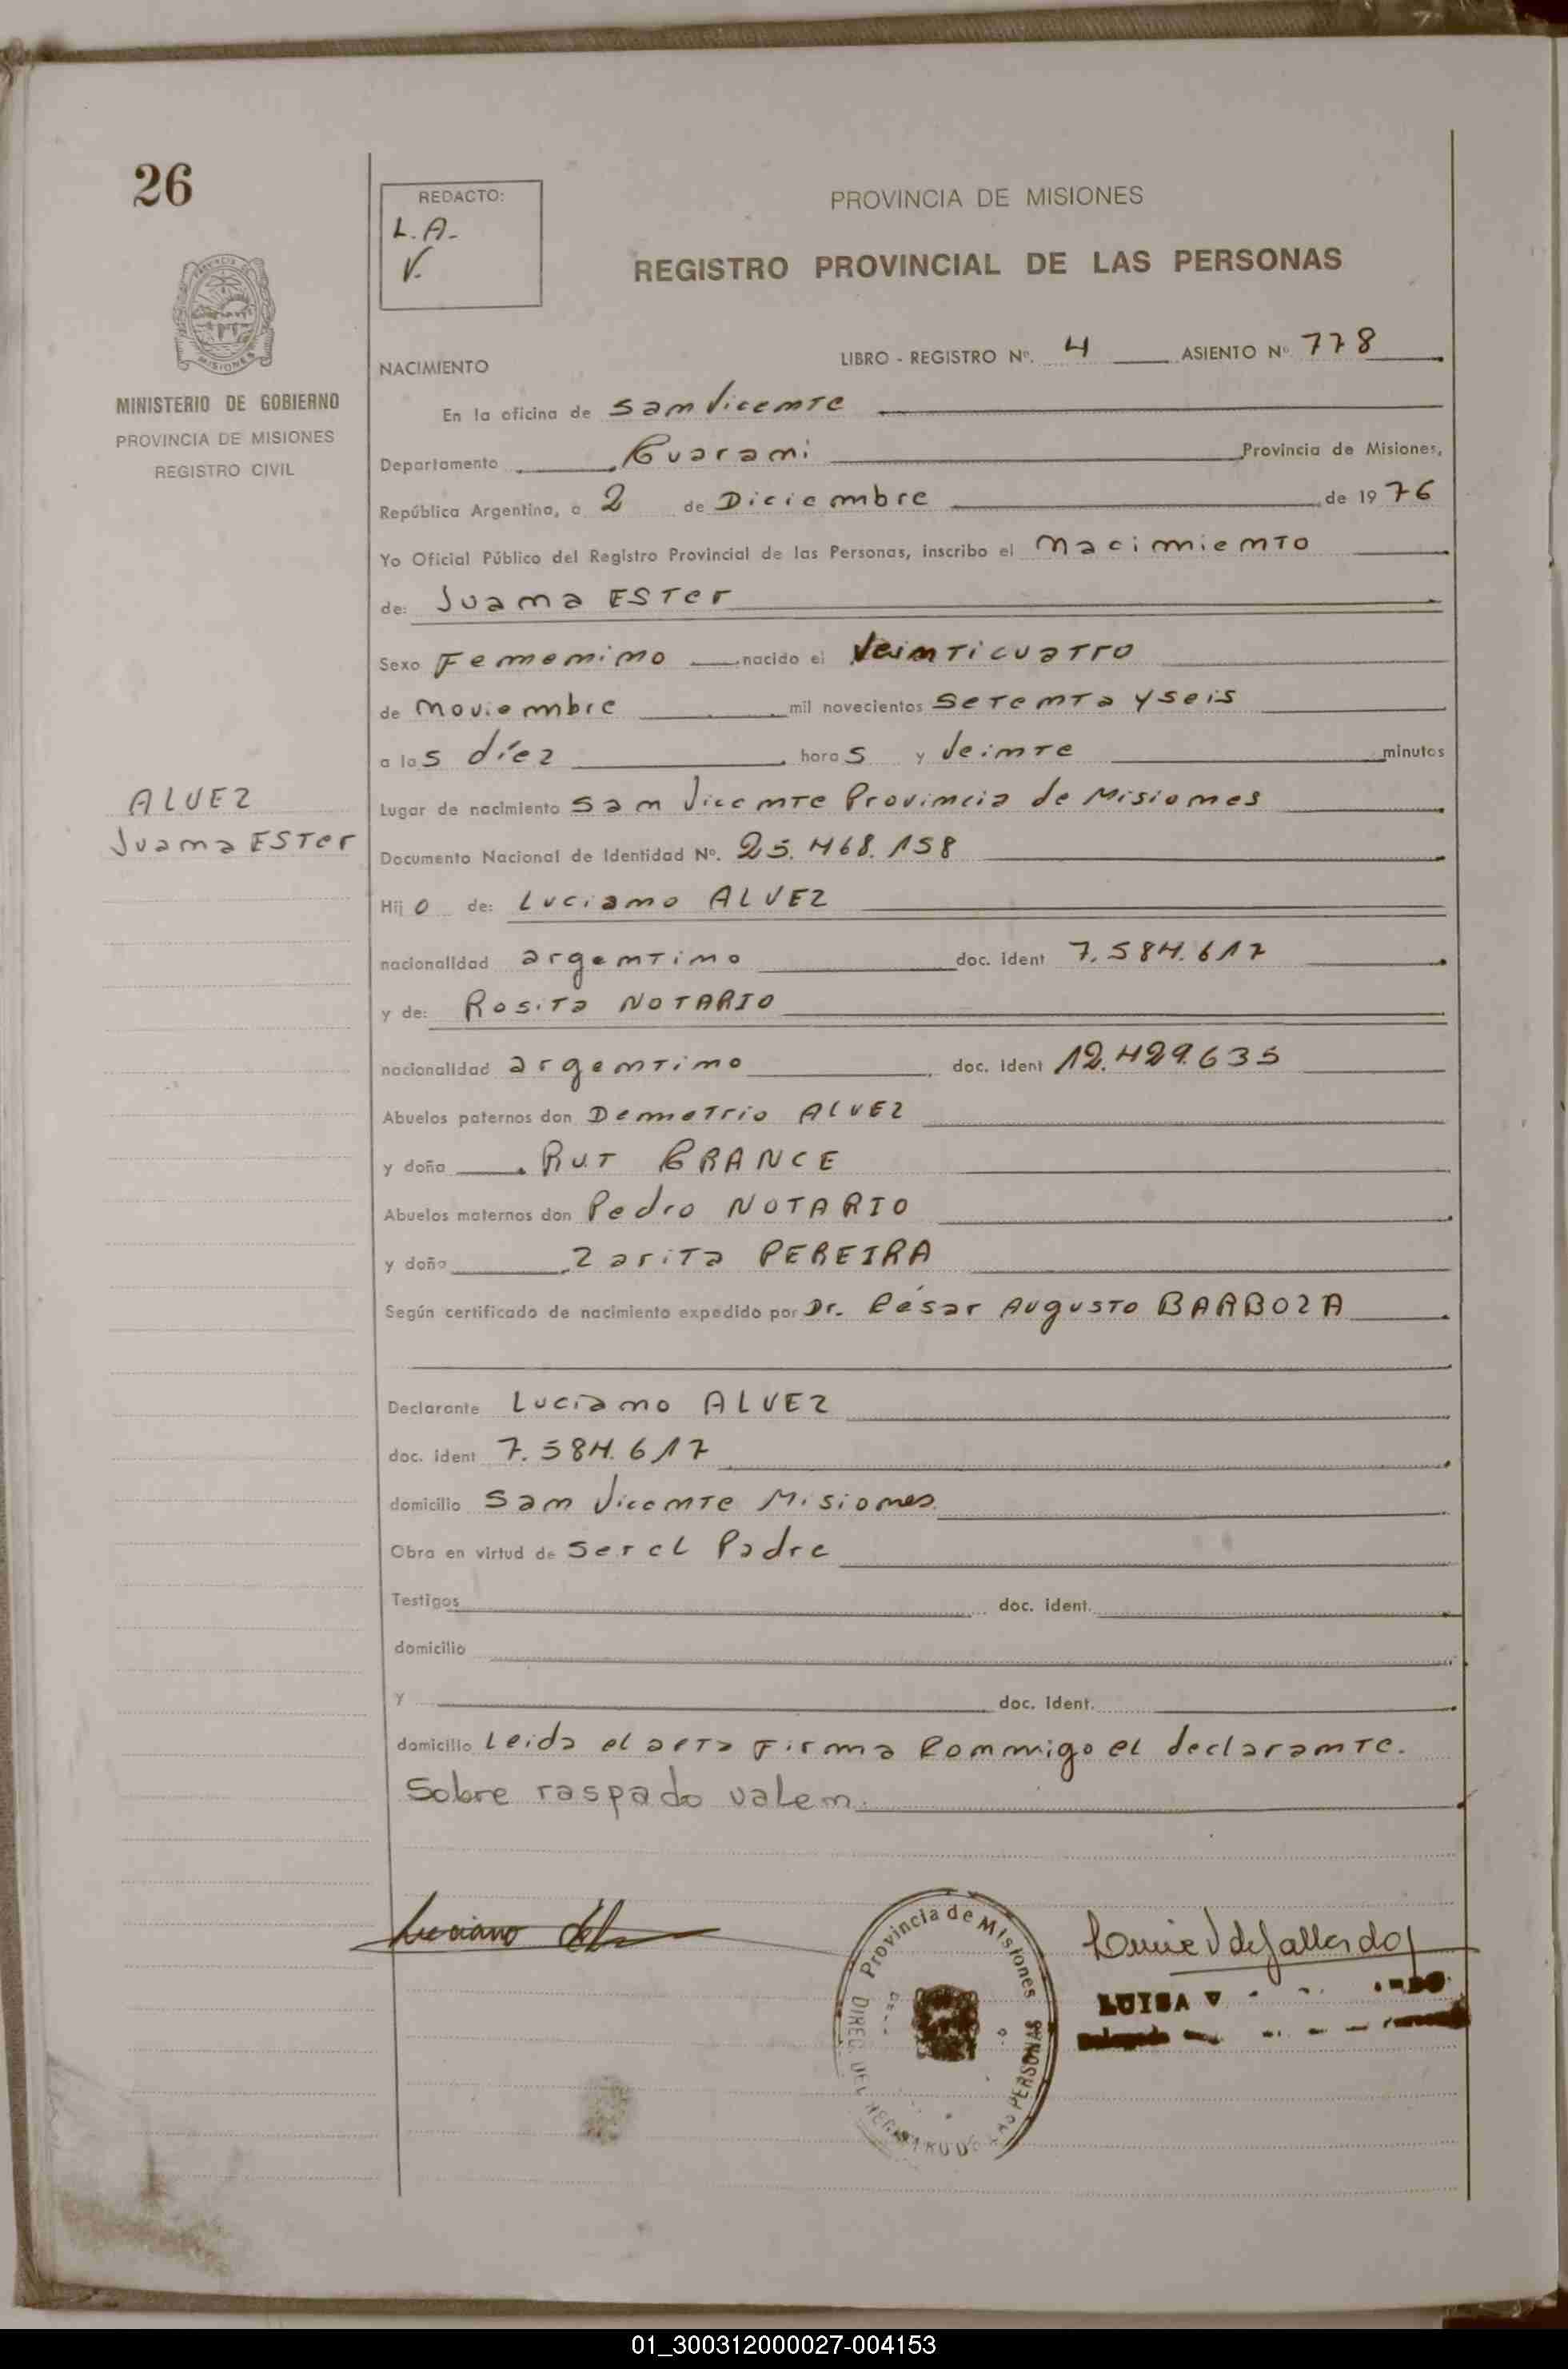 26
REDACTO:
L.A.
V.
PROVINCIA DE MISIONES
REGISTRO PROVINCIAL DE LAS PERSONAS
PROVINCIA DE
MISIONES
MINISTERIO DE GOBIERNO
PROVINCIA DE MISIONES
REGISTRO CIVIL
NACIMIENTO LIBRO - REGISTRO Nº. 4 ASIENTO Nº 778
En la oficina de San Vicente
Departamento Guarani Provincia de Misiones,
República Argentina, a 2 de Diciembre de 1976
Yo Oficial Público del Registro Provincial de las Personas, inscribo el nacimiento
de: Juana ESTer
Sexo Femenino nacido el Veinticuatro
de noviembre mil novecientos Setenta y seis
a las diez horas y Veinte minutos
ALVEZ
Juana ESTer
Lugar de nacimiento San Vicente Provincia de Misiones
Documento Nacional de Identidad Nº. 25.468.158
Hijo de: Luciano ALVEZ
nacionalidad argentino doc. ident 7.584.617
y de: Rosita NOTARIO
nacionalidad argentino doc. ident 12.429.635
Abuelos paternos don Demetrio ALVEZ
y doña RUT GRANCE
Abuelos maternos don Pedro NOTARIO
y doña Zarita PEREIRA
Según certificado de nacimiento expedido por Dr. César Augusto BARBOZA
Declarante Luciano ALVEZ
doc. ident 7.584.617
domicilio San Vicente Misiones
Obra en virtud de Ser el Padre
Testigos doc. ident.
domicilio
y doc. ident.
domicilio Leida el acta Firma Conmigo el declarante.
Sobre raspado valen.
Luciano
Provincia de Misiones
DIREC. DEL REGISTRO DE LAS PERSONAS
V de Gallardo
LUISA V
01_300312000027-004153